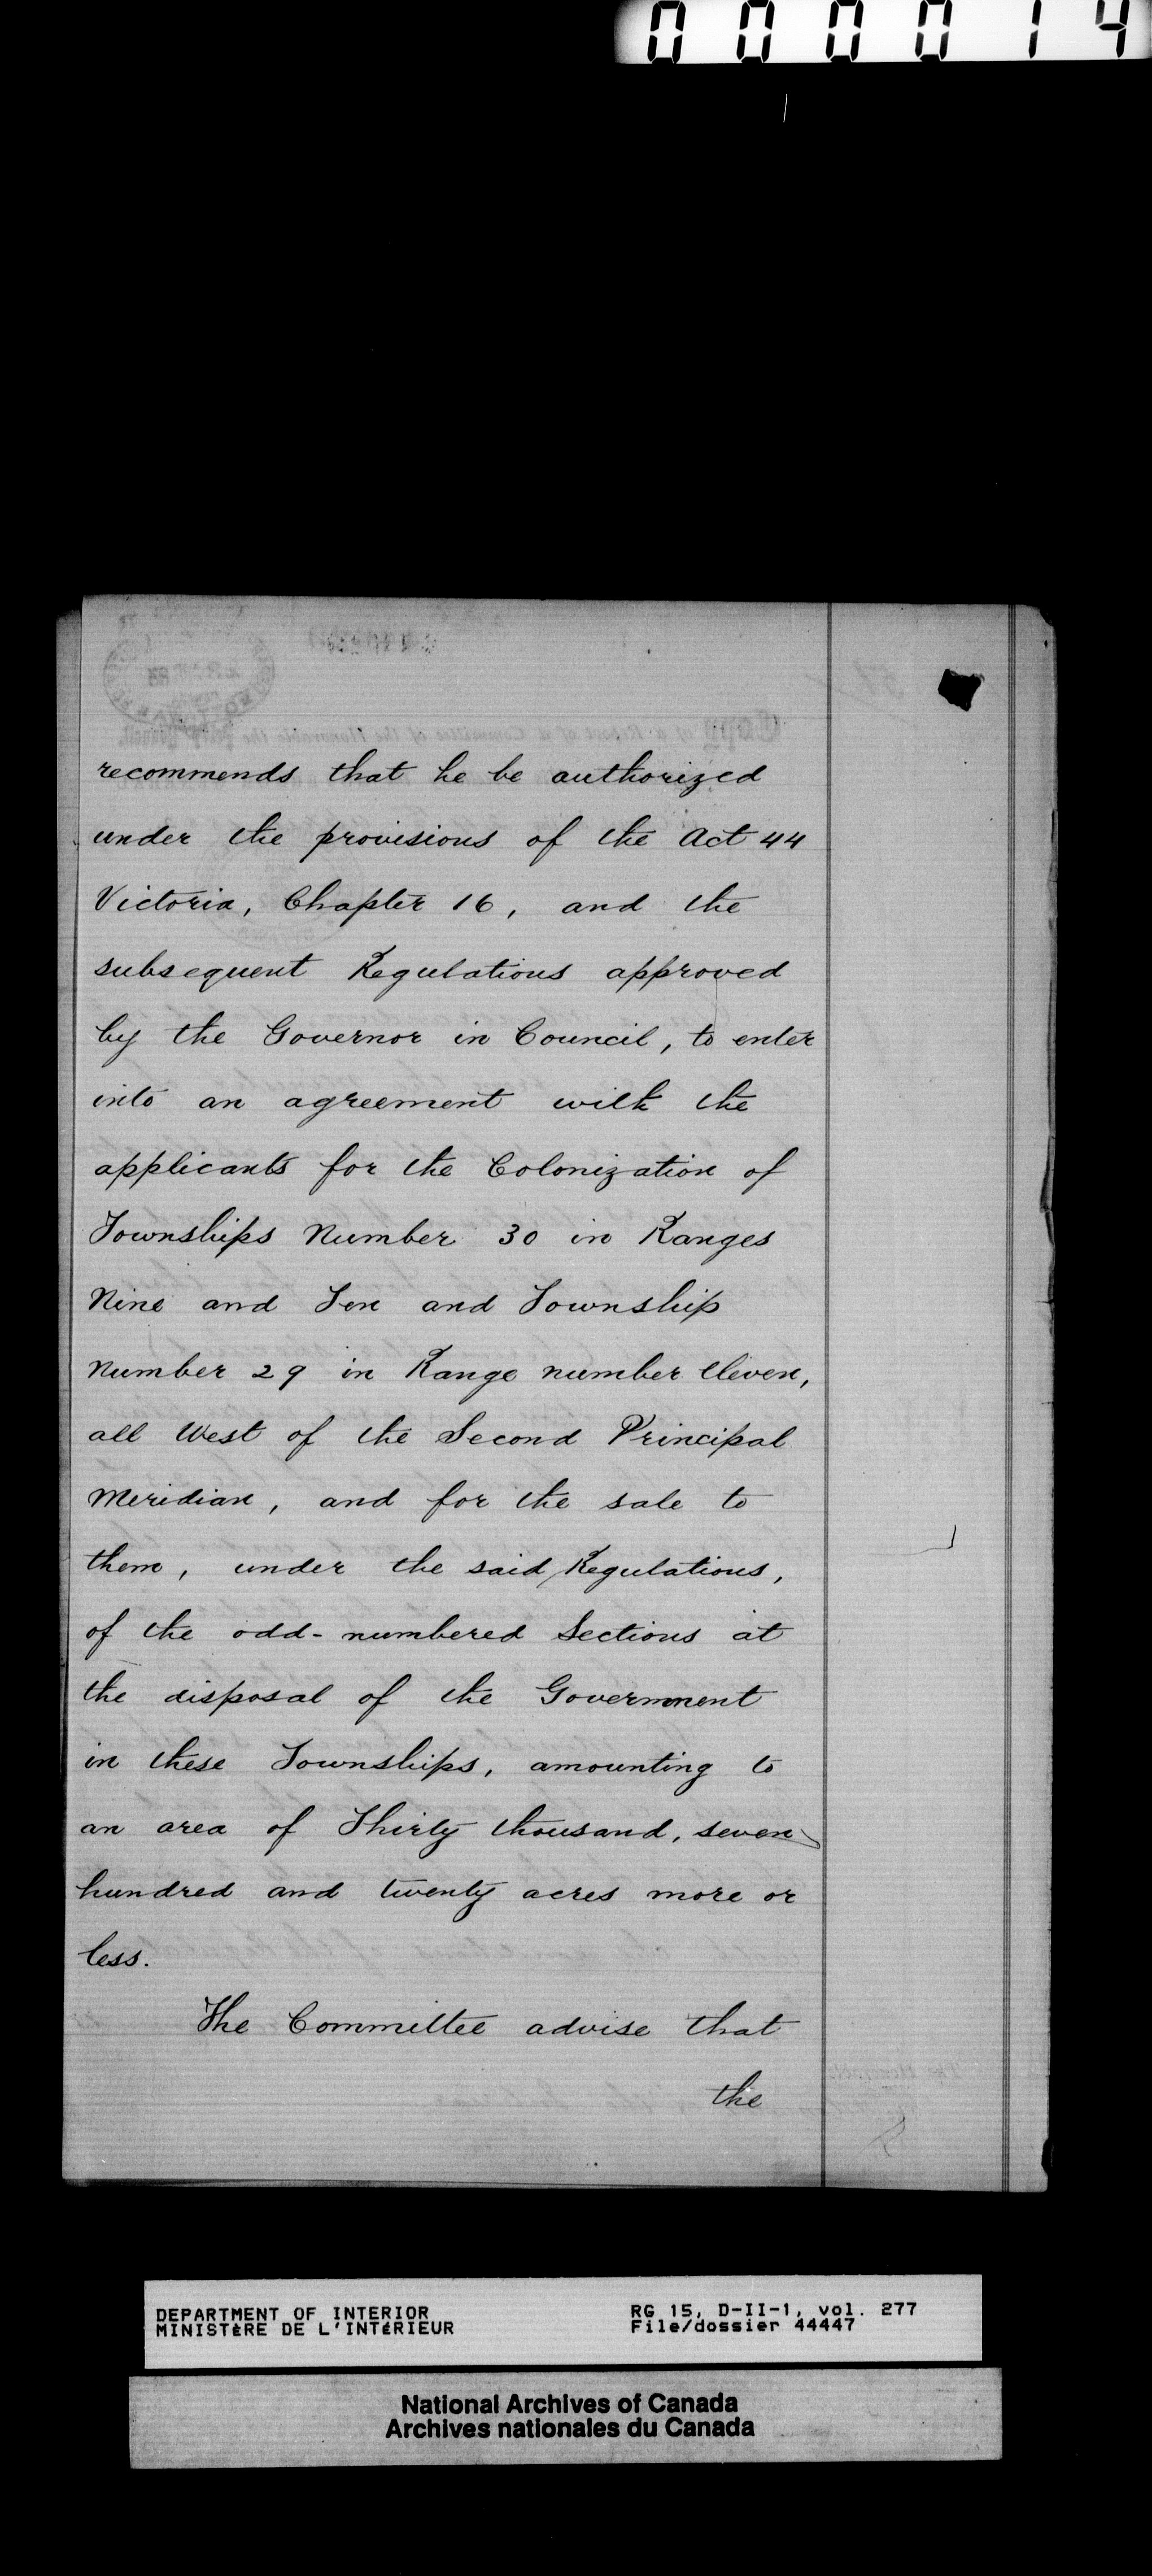 000014
recommends that he be authorized
under the provisions of the Act 44
Victoria, Chapter 16, and the
subsequent Regulations approved
by the Governor in Council, to enter
into an agreement with the
applicants for the Colonization of
Townships Number 30 in Ranges
Nine and Ten and Township
Number 29 in Range number Eleven,
all West of the Second Principal
Meridian, and for the sale to
them, under the said Regulations,
of the odd-numbered Sections at
the disposal of the Government
in these Townships, amounting to
an area of Thirty thousand, seven
hundred and twenty acres more or
less.
The Committee advise that
the
DEPARTMENT OF INTERIOR
MINISTÈRE DE L'INTÉRIEUR
RG 15, D-II-1, vol. 277
File/dossier 44447
National Archives of Canada
Archives nationales du Canada